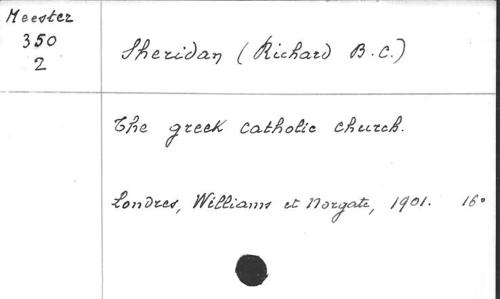 Meester
350
2
Sheridan (Richard B.C.)
The greek catholic church.
Londres, Williams et Norgate, 1901. 16°